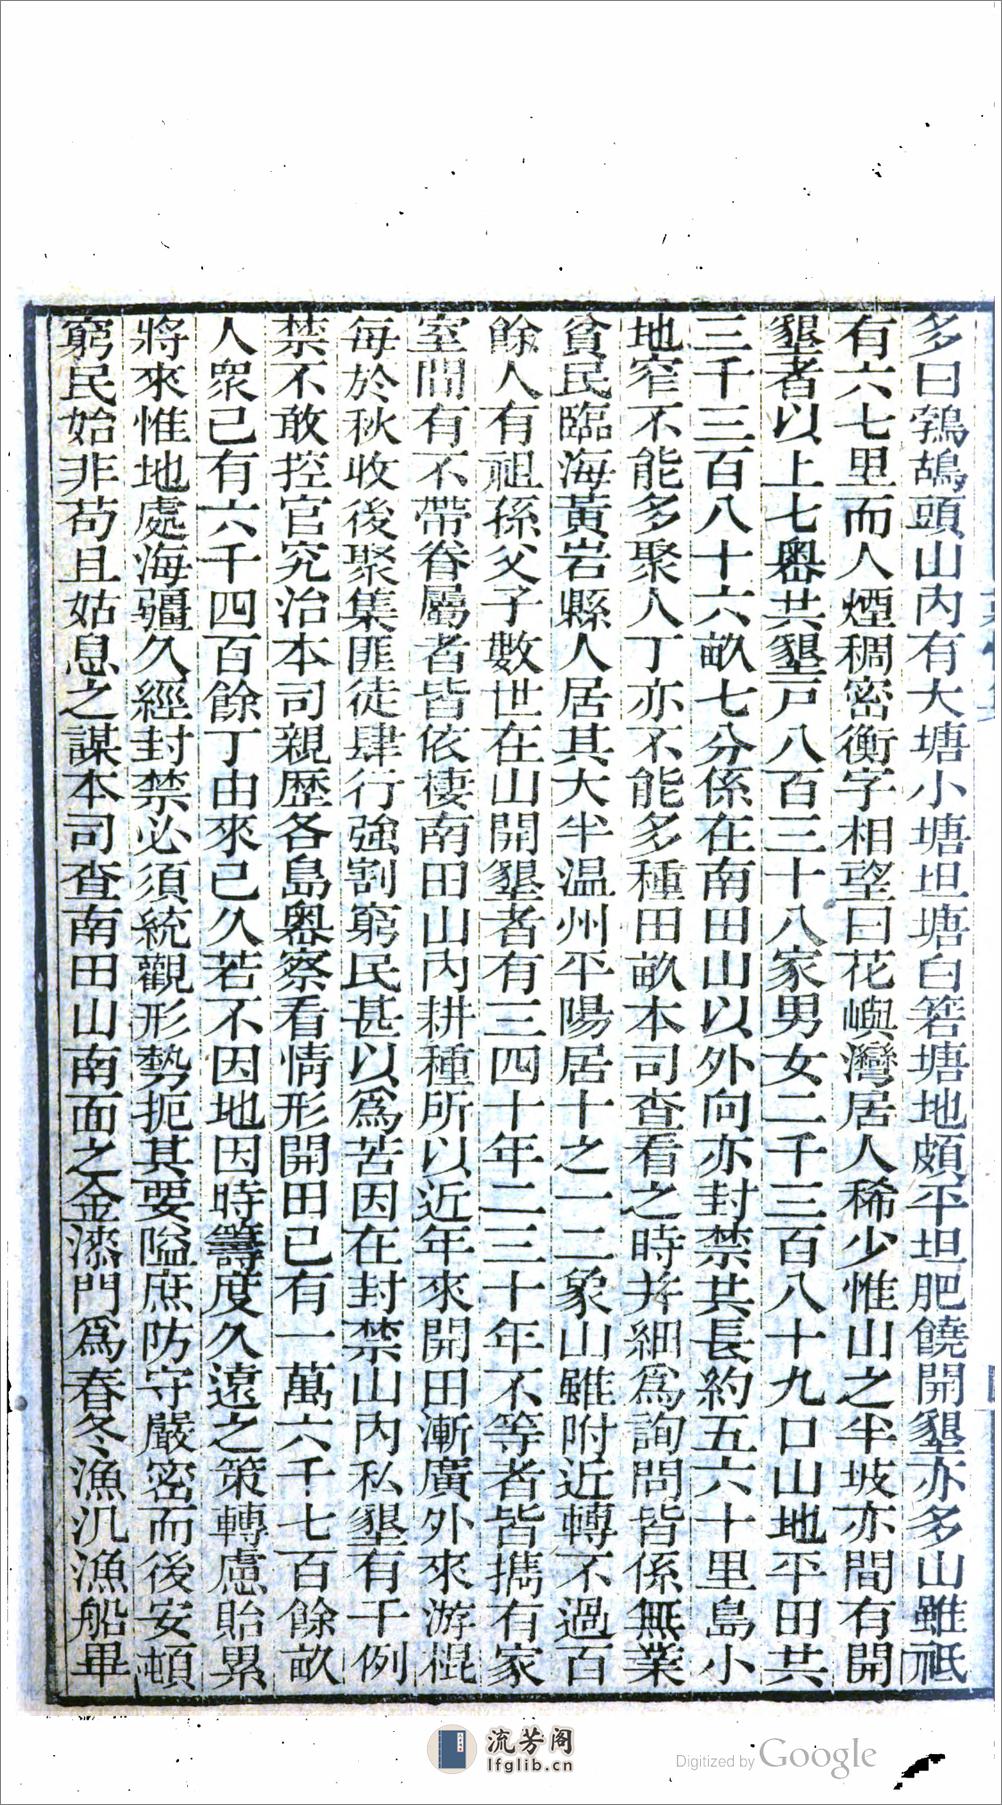 多曰鹁鴣頭山内有大塘小塘坦塘白箬塘地頗平坦肥饒開墾亦多山雖祗
有六七里而人煙稠密衡字相望曰花嶼灣居人稀少惟山之半坡亦間有開
墾者以上七嶴共墾戸八百三十八家男女二千三百八十九口山地平田共
三千三百八十六畝七分係在南田山以外向亦封禁共長約五六十里島小
地窄不能多聚人丁亦不能多種田畝本司查看之時并細爲詢問皆係無業
貧民臨海黃岩縣人居其大半温州平陽居十之一二象山雖附近轉不過百
餘人有祖孫父子數世在山開墾者有三四十年二三十年不等者皆攜有家
室間有不帶眷屬者皆依棲南田山内耕種所以近年來開田漸廣外來游棍
每於秋收後聚集匪徒肆行強割窮民甚以爲苦因在封禁山内私墾有干例
禁不敢控官究治本司親歷各島嶴察看情形開田已有一萬六千七百餘畝
人衆已有六千四百餘丁由來已久若不因地因時籌度久遠之策轉慮貽累
將來惟地處海疆久經封禁必須統觀形勢扼其要隘庶防守嚴密而後安頓
窮民始非苟且姑息之謀本司查南田山南面之金漆門爲春冬漁汛漁船畢
流芳阁
lfglib.cn
Digitized by Google